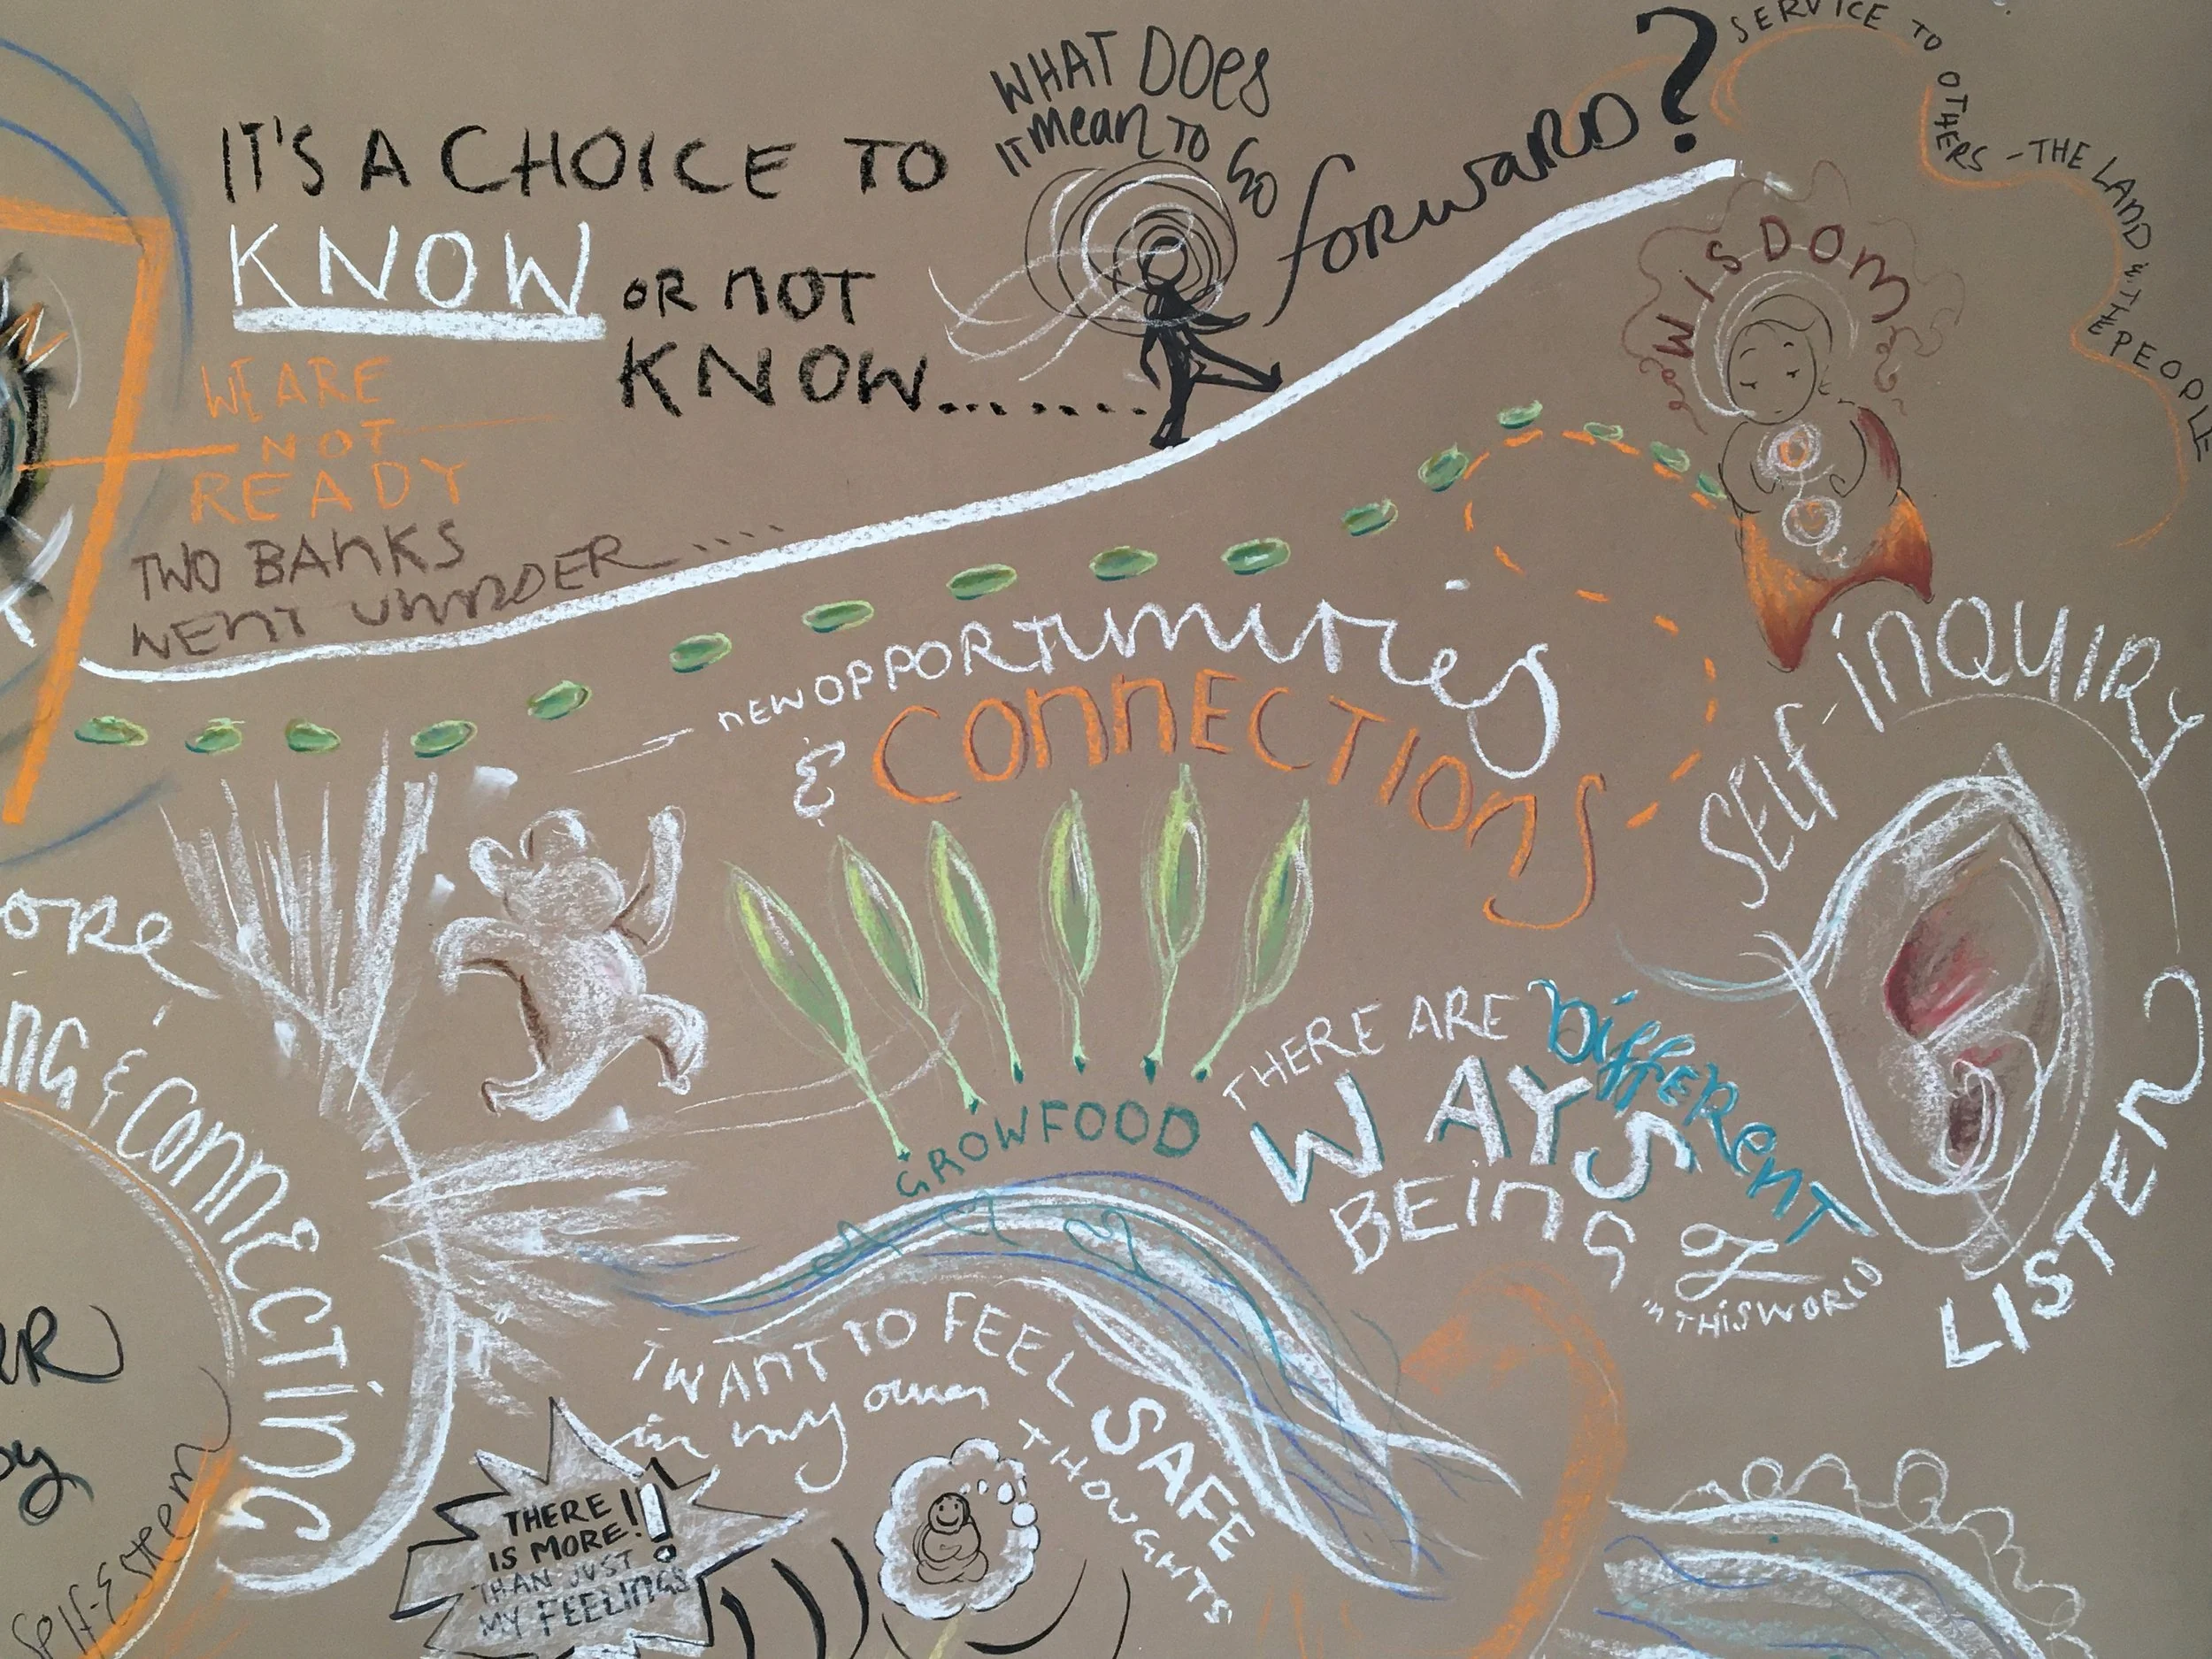 IT'S A CHOICE TO
KNOW OR NOT
KNOW.......
WHAT DOES
IT MEAN TO GO
FORWARD?
SERVICE TO OTHERS - THE LAND & THE PEOPLE
WISDOM
WE ARE
NOT
READY
TWO BANKS
WENT UNNDER....
NEW OPPORTUNITIES
& CONNECTIONS
SELF-INQUIRY
LISTEN
ORE
NG & CONNECTING
GROW FOOD
THERE ARE DIFFERENT
WAYS
BEING OF
IN THIS WORLD
I WANT TO FEEL SAFE
in my own THOUGHTS
THERE
IS MORE!!!
THAN JUST
MY FEELINGS
Self-Esteem